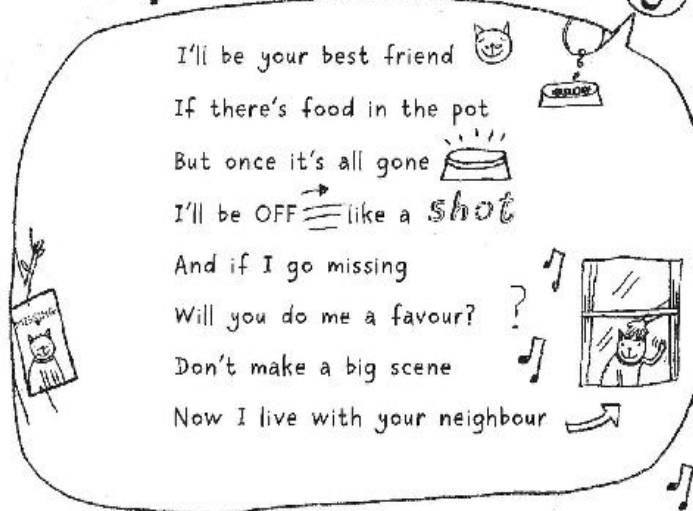 I'll be your best friend
If there's food in the pot
But once it's all gone
I'll be OFF like a shot
And if I go missing
Will you do me a favour?
?
Don't make a big scene
Now I live with your neighbour
MISSING